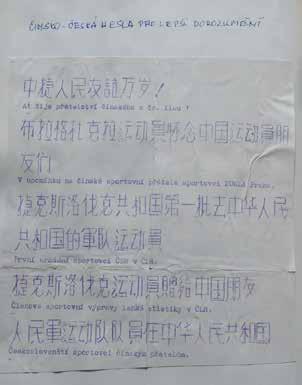 ČÍNSKO-ČESKÁ HESLA PRO LEPŠÍ DOROZUMĚNÍ
中捷人民友谊万岁!
Ať žije přátelství čínského a čs. lidu !
布拉格扎克拉运动員怀念中国运动員朋
友们
V upomínku na čínské sportovní přátele sportovci Praha.
捷克斯洛伐克共和国第一批去中华人民
共和国的軍队运动員
První armádní sportovci ČSR v ČLR.
捷克斯洛伐克运动員贈给中国朋友
Členové sportovní výpravy
人民軍运动队队員在中华人民共和国
Českoslovenští sportovci čínským přátelům.